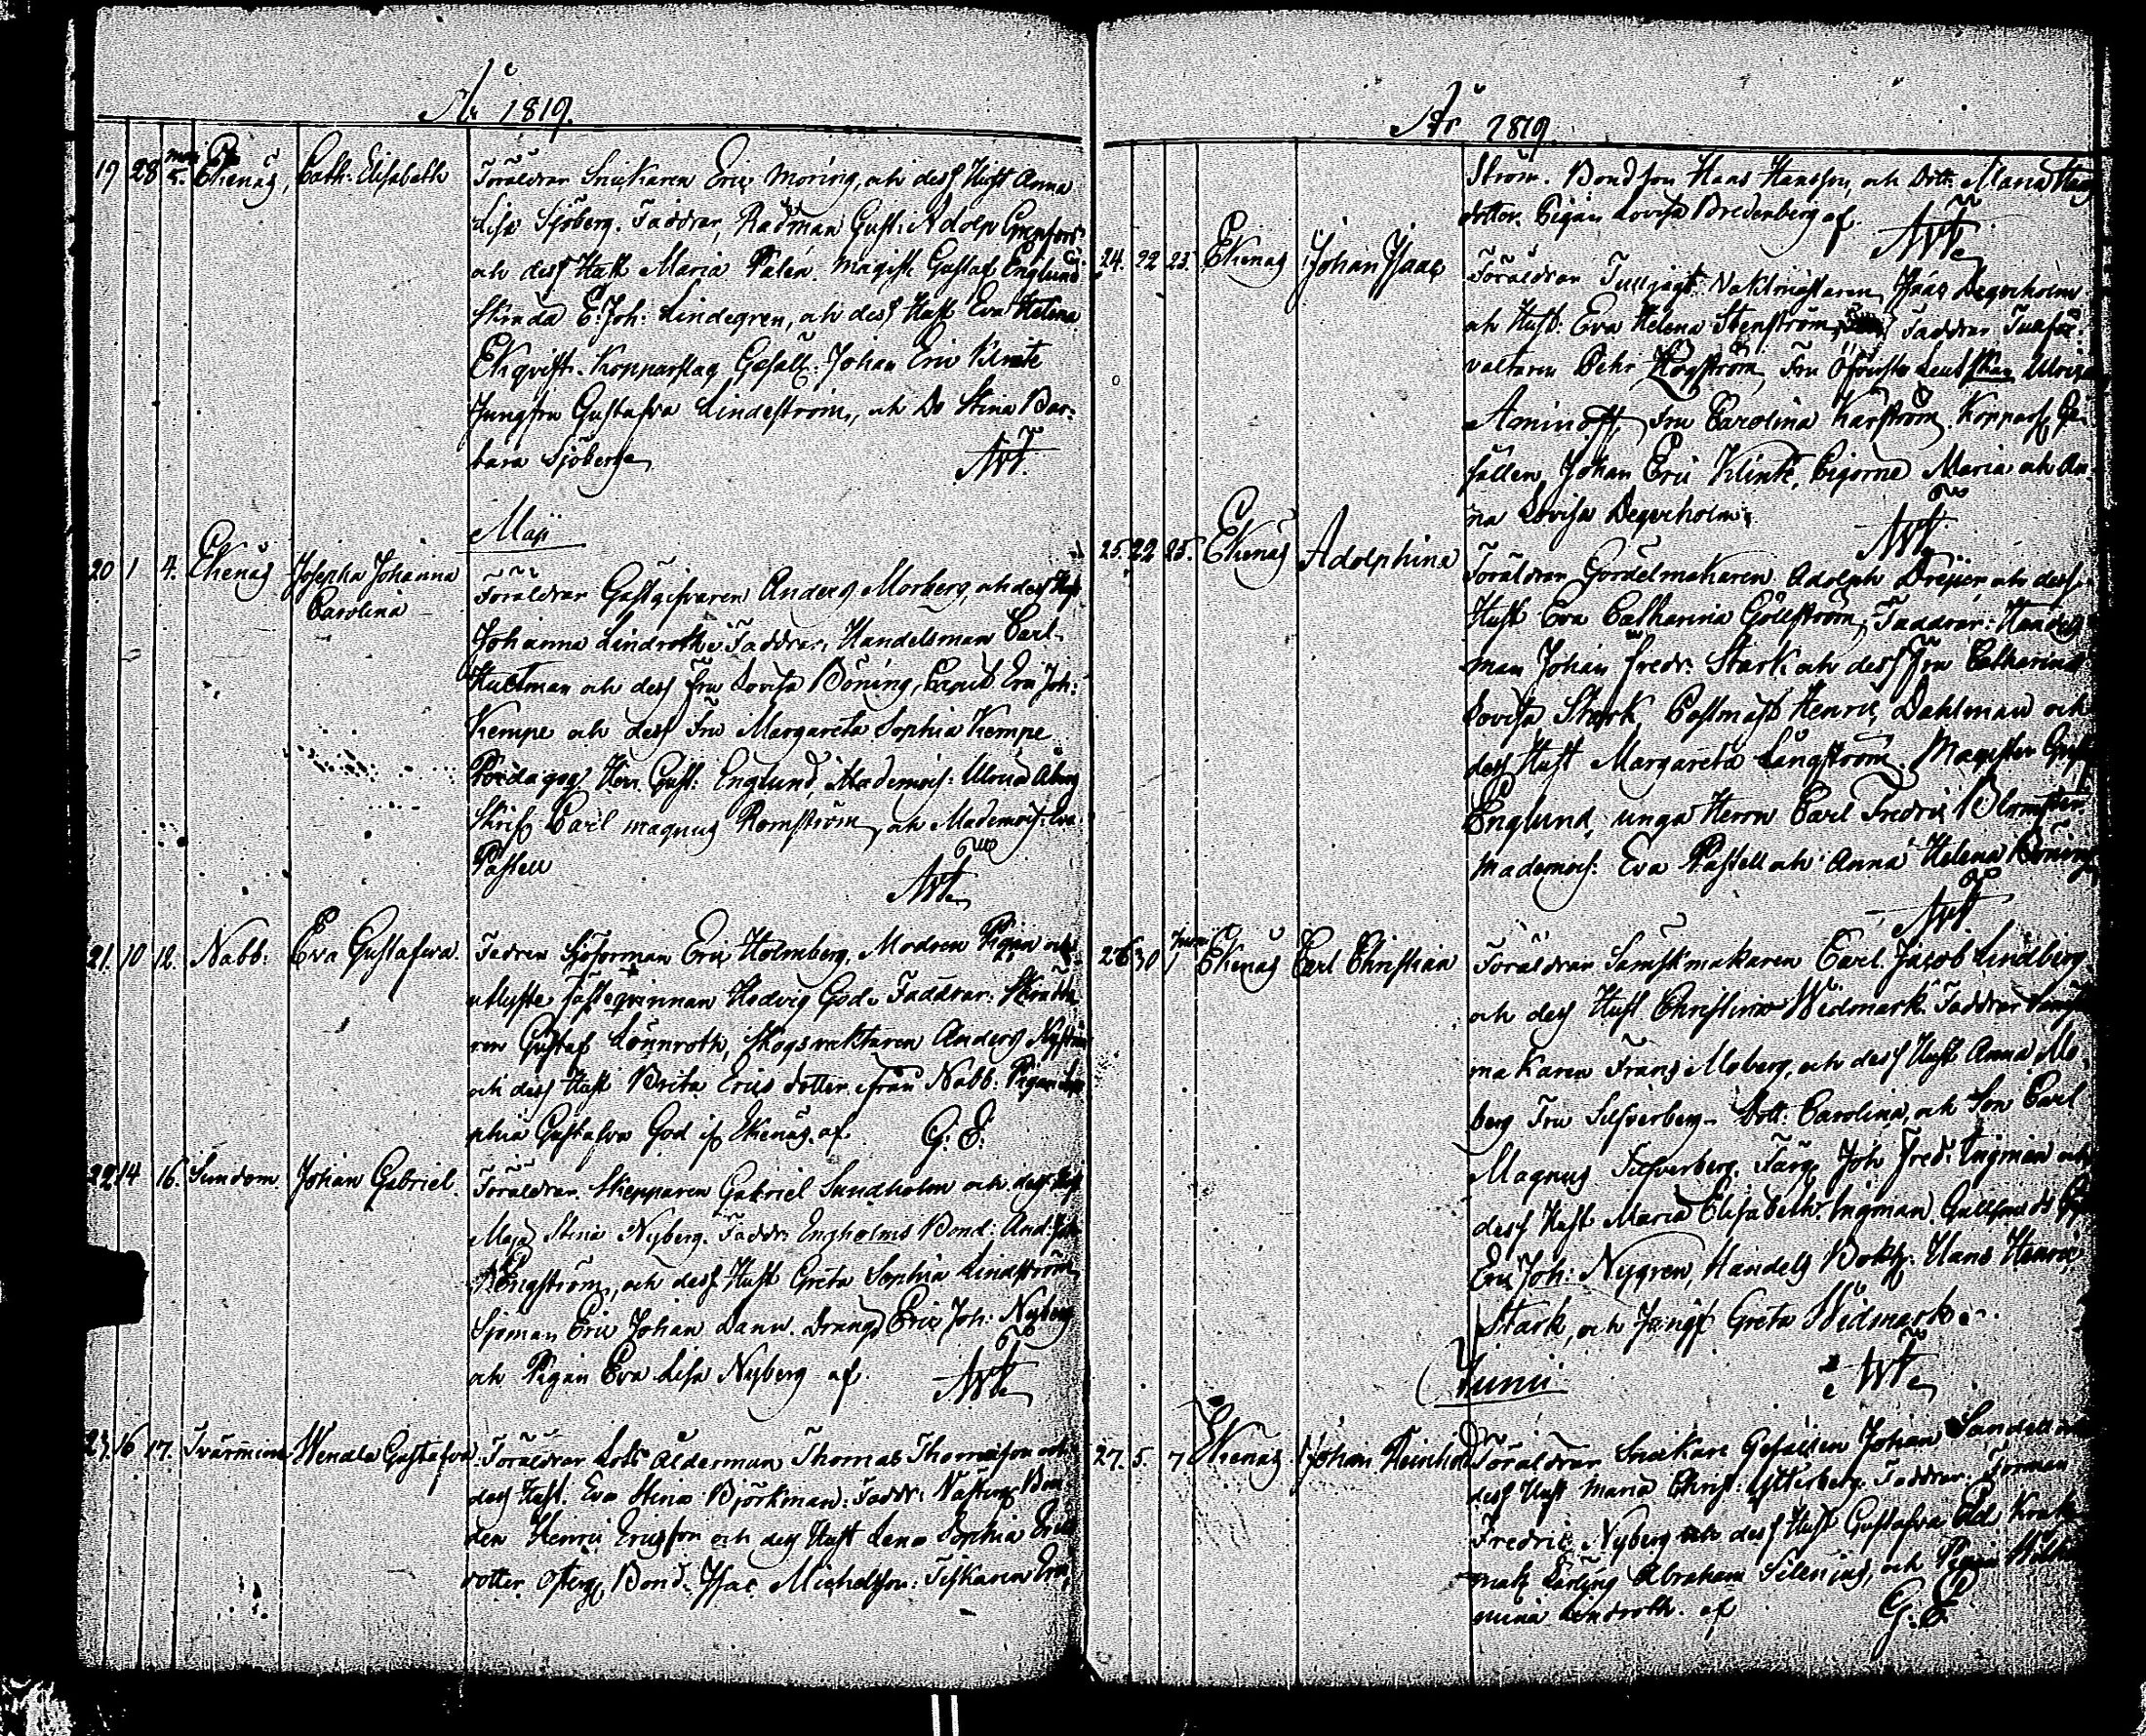 År 1819.
19 28 maj 5. Ekenäs, Cath: Elisabeth Föräldrar Snickaren Eric Moring, och dess Hust Anna
Lisa Sjöberg. Faddrar, Rådman Gust: Adolp
och dess Hust Maria Palén. Magist Gustaf Englund
E: Joh: Lindegren, och dess Hust Eva Helena
Ekqvist. Kopparslag Gesäll: Johan Eric Klinte
Jungfru Gustafva Lindeström, och Do Stina Bar-
bara Sjöberg
Maji
20 1 4. Ekenäs Josepha Johanna Föräldrar Gästgifvaren Anders Morberg, och dess Hust
Carolina
Johanna Lindroth. Faddrar, Handelsman Carl
Hultman och dess Fru Lovisa Böning, Capit Eric Joh:
Kempe och dess Fru Margareta Sophia Kempe
Pædagog Herr Gust: Englund, Mademois: Ulrica Åberg
Skrif Carl Magnus Romström, och Mademois: Eva
Pastell
21. 10 12. Nabb. Eva Gustafva. Fadren Sjöforman Eric Holmberg, Modren Pigan och
utlyste fästeqvinnan Hedvig God. Faddrar:
ren Gustaf Lönnroth, Skogsvaktaren Anders Nyström
och dess Hust Brita Erics dotter ifrån Nabb. Pigan So
phia Gustafva God if Ekenäs. af G: E:
22 14 16. Sundom. Johan Gabriel. Föräldrar Skepparen Gabriel Sundholm och dess Hust
Maja Stina Nyberg. Faddr: Engholms Bond: And: Joh
Engström, och dess Hust Greta Sophia Lindström
Sjöman Eric Johan Dann. Dräng Eric Joh: Nyberg
och Pigan Eva Lisa Nyberg af.
23. 16 17. Tvärminne Wendla Gustafva Föräldrar Lots Ålderman Thomas Thomasson och
dess Hust. Eva Stina Björkman: Faddr: Bon
den Henric Ericsson och dess Hust Lena Sophia Erics
dotter Bond. Isac Michelsson: Fiskaren Eric
År 1819
ström. Bondson Haas Hansson, och Dott: Maria Hans
dotter. Pigan Lovisa Bredenberg af.
24. 22 23. Ekenäs Johan Isaac Föräldrar Tulljagt. Vaktmästaren, Isaac Degerholm
och Hust: Eva Helena Stenström, Faddrar Tullför-
valtaren Pehr Högström, Fru Öfverste Leut Ulrica
Aminoff, Fru Carolina Karström. Kopparsl Ge-
sällen, Johan Eric Klinte, Pigorne Maria och An-
na Lovisa Degerholm.
25. 22 25. Ekenäs Adolphina Föräldrar Gördelmakaren Adolph Dreijer och dess
Hust Eva Catharina Göllström, Faddrar: Handels
man Johan Fredr. Stark och dess Fru Catharina
Lovisa Stark, Postmäst Henric Dahlman och
dess Hust Margareta Långström. Magister Gust
Englund, unga Herrn Carl Fredric Blomster
Mademois: Eva Pastell och Anna Helena Böning
26 30 Juni 1 Ekenäs Carl Christian Föräldrar Sämskmakaren Carl Jacob Lindberg
och dess Hust Christina Widmark. Faddrar
makaren Frans Moberg, och dess Hust Anna Mo-
berg Fru Silfverberg. Dott: Carolina, och Son Carl
Magnus Silfverberg. Färg. Joh Fred: Ingman och
dess Hust Maria Elisabeth Ingman. Gullsmeds
Eric Joh: Nygren, Handels Hans Henric
Stark, och Jungf Greta Widmark.
Junii
27. 5. 7 Ekenäs Johan Reinhold Föräldrar Snickare Gesällen Johan Sandell och
dess Hust Maria Christ Ytterberg. Faddrar. Forman
Fredric Nyberg och dess Hust Gustafva
Lärling Abraham Silenius, och Pigan
mina Lindroth. af G: E.